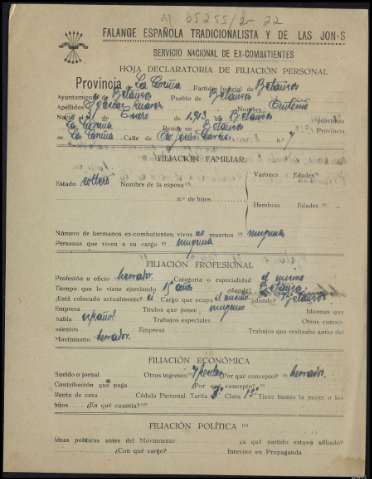 M 05255/2-22
FALANGE ESPAÑOLA TRADICIONALISTA Y DE LAS JON-S
SERVICIO NACIONAL DE EX-COMBATIENTES
HOJA DECLARATORIA DE FILIACIÓN PERSONAL
Provincia La Coruña Partido Judicial de Betanzos
Ayuntamiento de Betanzos Pueblo de Betanzos
Apellidos Nombre Antonio
de Enero de 1913 en Betanzos
La Coruña Reside en Betanzos Provincia
La Coruña Calle de
FILIACIÓN FAMILIAR
Varones Edades
Estado soltero Nombre de la esposa
n.º de hijos
Hembras Edades
Número de hermanos ex-combatientes vivos no muertos ninguno
Personas que viven a su cargo ninguna
FILIACIÓN PROFESIONAL
Profesión u oficio herrador Categoria o especialidad el mismo
Tiempo que le viene ejerciendo años Betanzos
¿Está colocado actualmente? si Cargo que ocupa el mismo ¿dónde? Betanzos
Empresa Títulos que posee ninguno Idiomas que
habla español Trabajos especiales Otros conoci-
mientos Empresa Trabajos que realizaba antes del
Movimiento herrador
FILIACIÓN ECONÓMICA
Sueldo o jornal Otros ingresos ¿Por qué concepto? herrador
Contribución que paga ¿Por qué concepto?
Renta de casa Cédula Personal Tarifa Clase 13ª Tiene bienes la mujer o los
hijos ¿En qué cuantía?
FILIACIÓN POLÍTICA
Ideas políticas antes del Movimiento ¿a qué partido estuvo afiliado?
¿Con qué cargo? Intervino en Propaganda